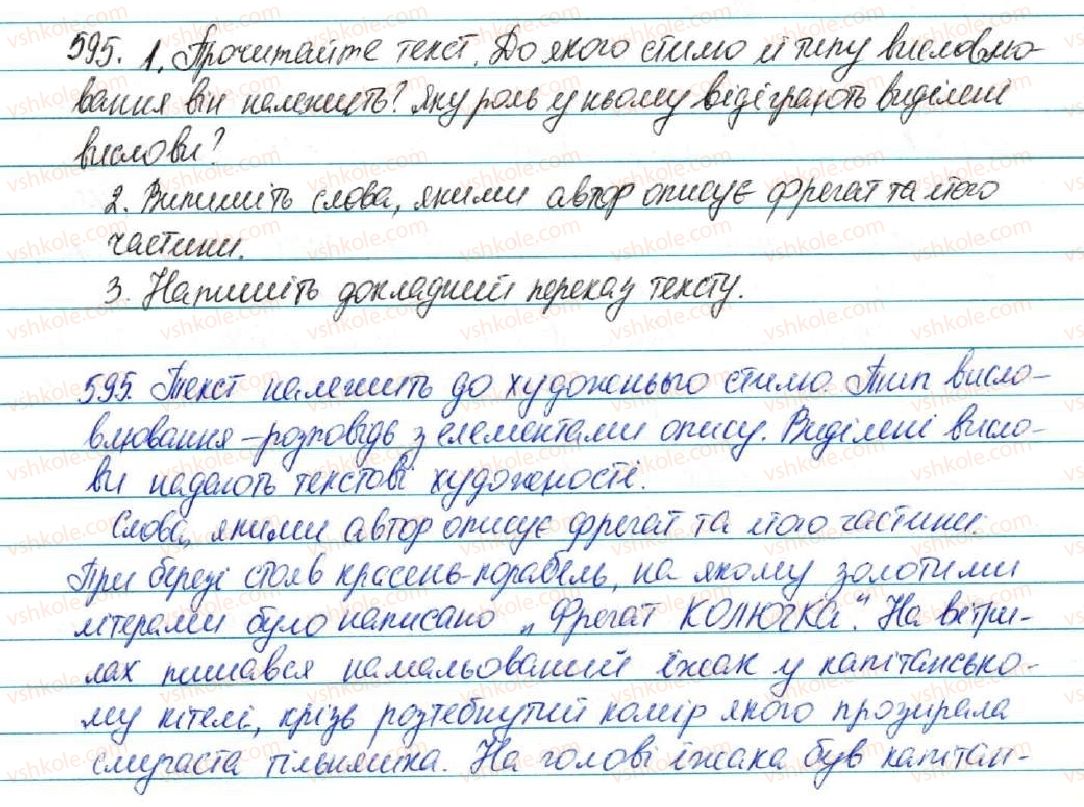 595. 1. Прочитайте текст. До якого стилю й типу висловлю-
вання він належить? Яку роль у ньому відіграють виділені
вислови?
2. Випишіть слова, якими автор описує фрегат та його
частини.
3. Напишіть докладний переказ тексту.
595. Текст належить до художнього стилю. Тип висло-
влювання – розповідь з елементами опису. Виділені висло-
ви надають текстові художності.
Слова, якими автор описує фрегат та його частини:
При березі стояв красень-корабель, на якому золотими
літерами було написано „Фрегат КОЛЮЧКА". На вітри-
лах пишався намальований їжак у капітансько-
му кітелі, крізь розтебнутий комір якого прозирала
смугаста тільняшка. На голові їжака був капітан-
vshkole.com